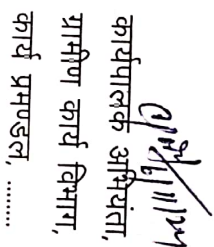 6/11/24
कार्यपालक अभियंता,
ग्रामीण कार्य विभाग,
कार्य प्रमण्डल, ........